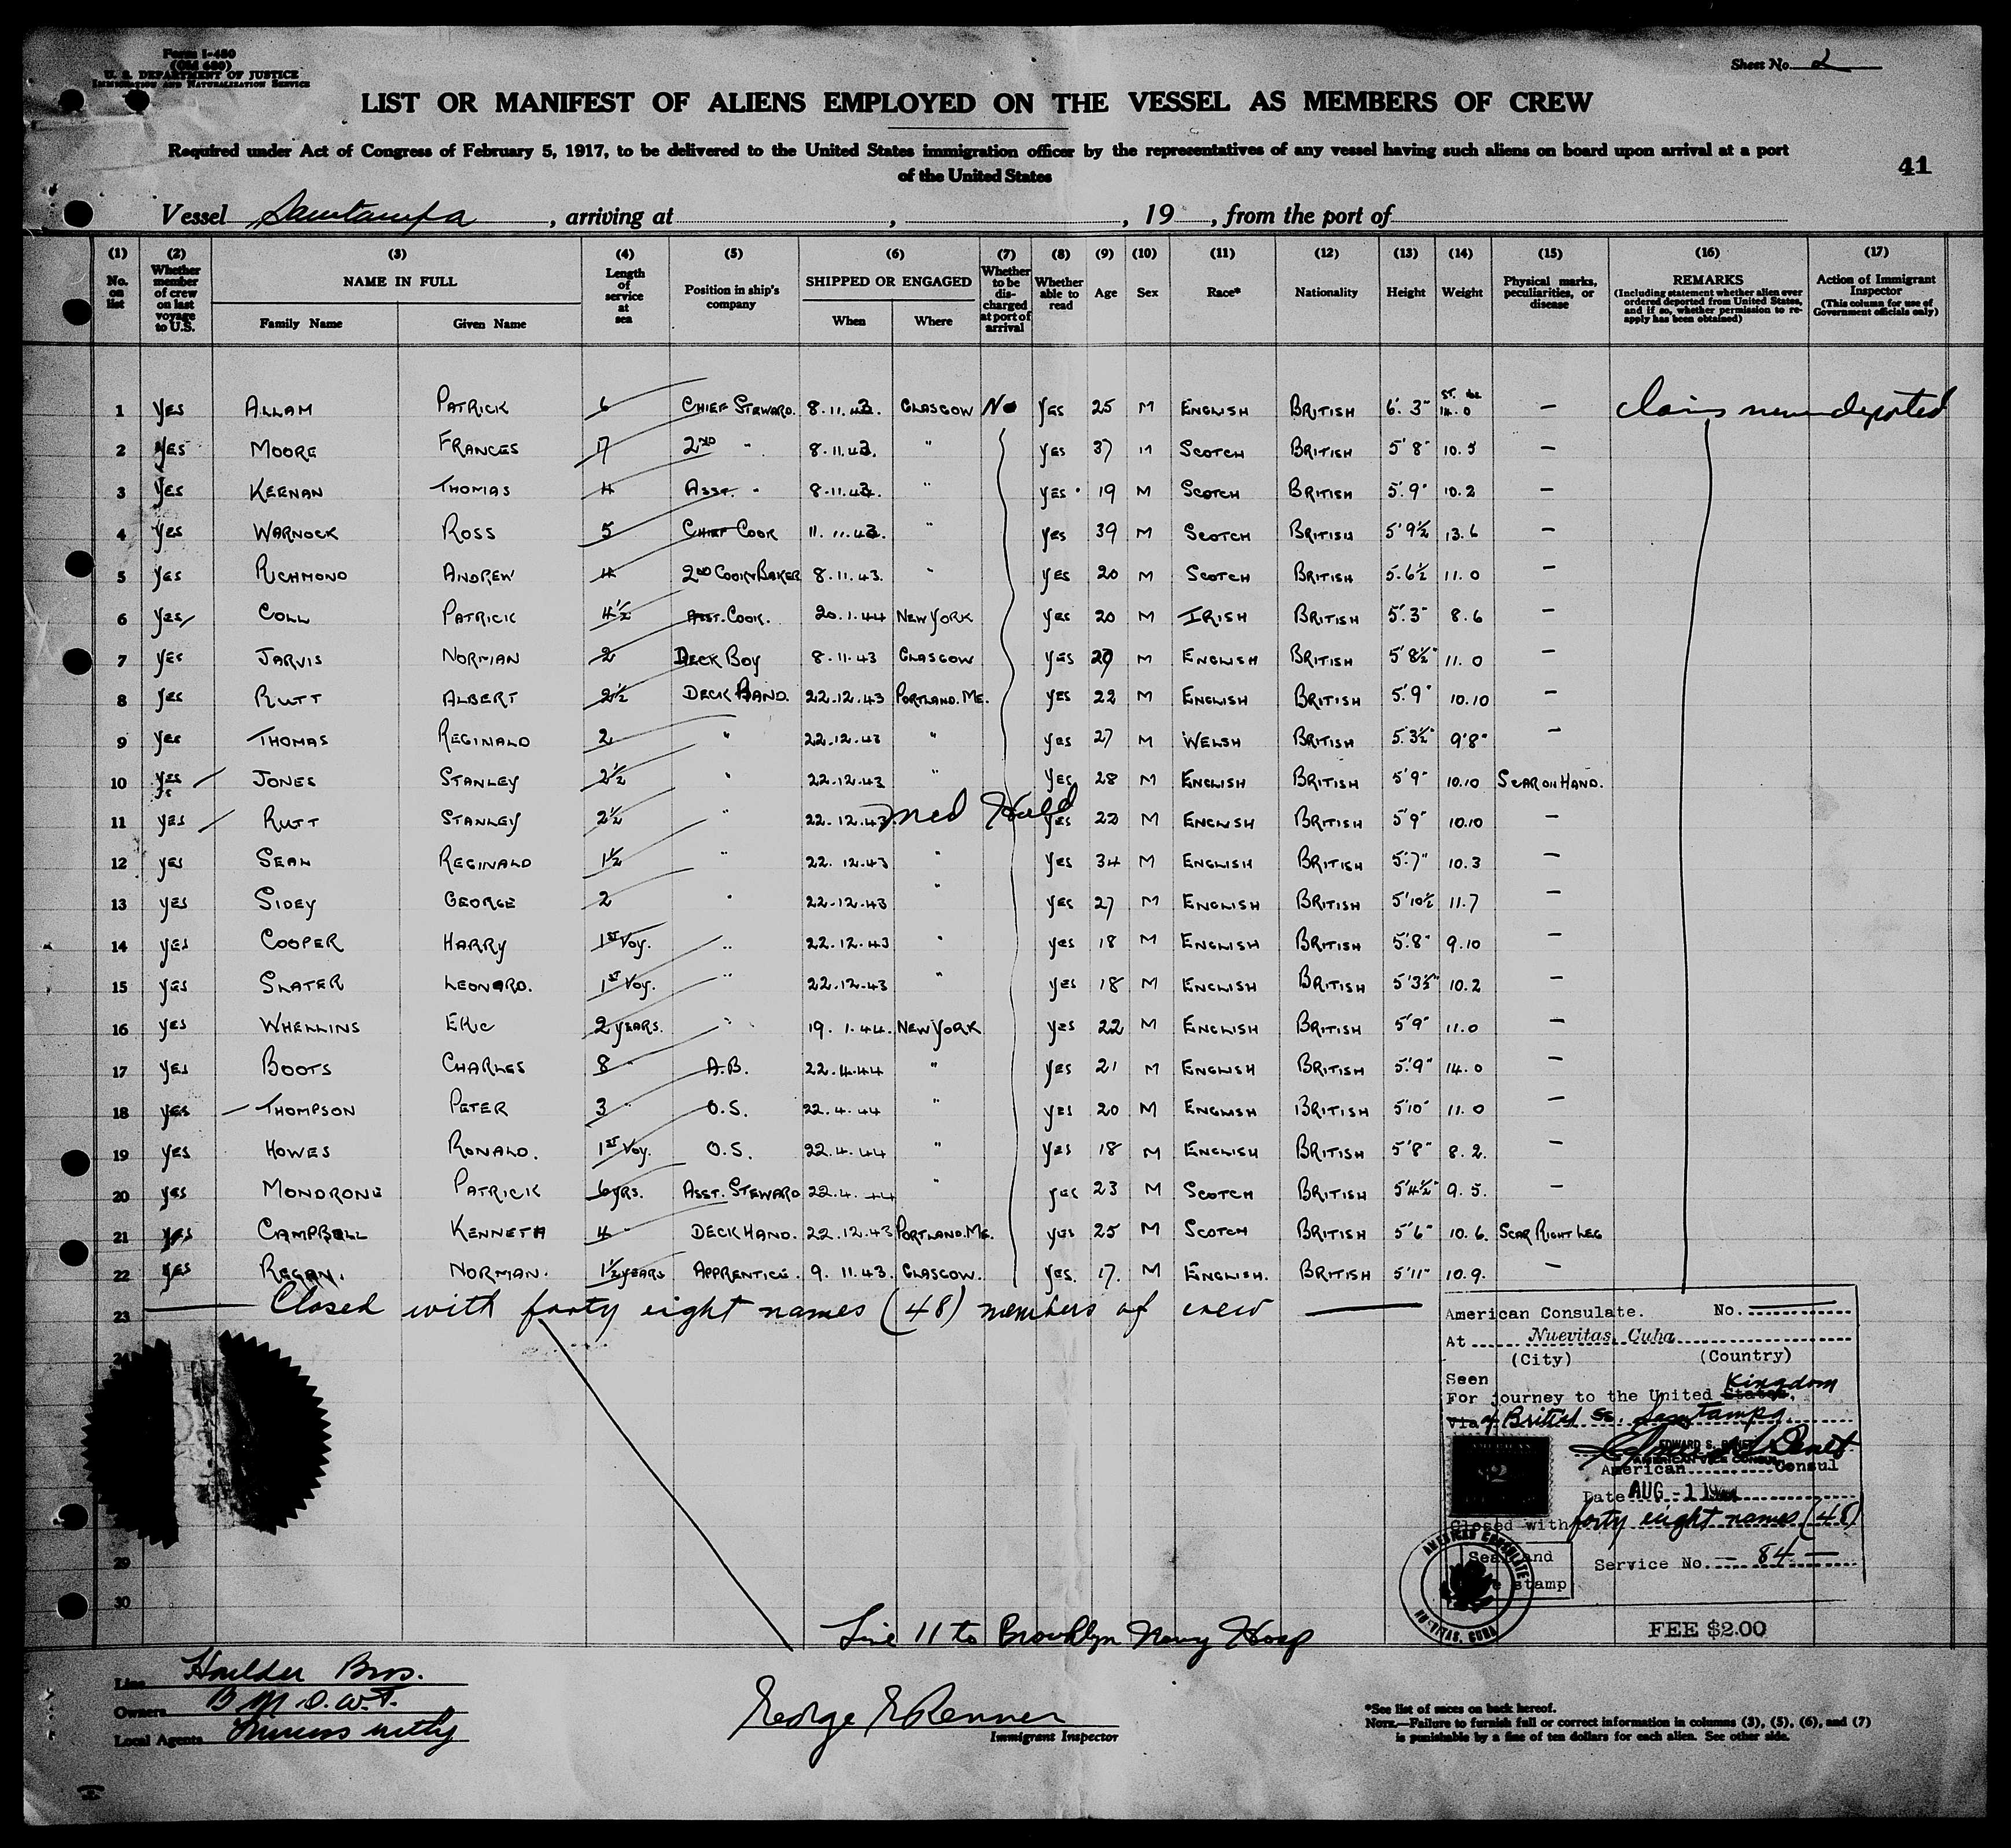 Form I-480
(Old 680)
U. S. DEPARTMENT OF JUSTICE
IMMIGRATION AND NATURALIZATION SERVICE
Sheet No. 2
LIST OR MANIFEST OF ALIENS EMPLOYED ON THE VESSEL AS MEMBERS OF CREW
Required under Act of Congress of February 5, 1917, to be delivered to the United States immigration officer by the representatives of any vessel having such aliens on board upon arrival at a port
of the United States
41
Vessel Samtampa, arriving at , , 19 , from the port of
(1) No. on list
(2) Whether member of crew on last voyage to U.S.
(3) NAME IN FULL Family Name Given Name
(4) Length of service at sea
(5) Position in ship's company
(6) SHIPPED OR ENGAGED When Where
(7) Whether to be discharged at port of arrival
(8) Whether able to read
(9) Age
(10) Sex
(11) Race*
(12) Nationality
(13) Height
(14) Weight
(15) Physical marks, peculiarities, or disease
(16) REMARKS (Including statement whether alien ever ordered deported from United States, and if so, whether permission to reapply has been obtained)
(17) Action of Immigrant Inspector (This column for use of Government officials only)
1 Yes ALLAM PATRICK 6 CHIEF STEWARD. 8.11.43. GLASGOW No Yes 25 M ENGLISH BRITISH 6'. 3" 14.0 — Claims never deported
2 Yes MOORE FRANCES 17 2ND " 8.11.43. " Yes 37 M SCOTCH BRITISH 5'8" 10.5 —
3 Yes KEENAN THOMAS 4 ASST. " 8.11.43. " Yes 19 M SCOTCH BRITISH 5'.9" 10.2 —
4 Yes WARNOCK ROSS 5 CHIEF COOK 11.11.43. " Yes 39 M SCOTCH BRITISH 5'9½ 13.6 —
5 Yes RICHMOND ANDREW 4 2ND COOK+BAKER 8.11.43. " Yes 20 M SCOTCH BRITISH 5.6½ 11.0 —
6 Yes COLL PATRICK 4½ ASST. COOK. 20.1.44 NEW YORK Yes 20 M IRISH BRITISH 5'.3" 8.6 —
7 Yes JARVIS NORMAN 2 DECK BOY 8.11.43 GLASGOW Yes 20 M ENGLISH BRITISH 5'8½" 11.0 —
8 Yes RUTT ALBERT 2½ DECK HAND. 22.12.43 PORTLAND. ME. Yes 22 M ENGLISH BRITISH 5'.9" 10.10 —
9 Yes THOMAS REGINALD 2 " 22.12.43 " Yes 27 M WELSH BRITISH 5.3½" 9'8" —
10 Yes JONES STANLEY 2½ " 22.12.43 " Yes 28 M ENGLISH BRITISH 5'9" 10.10 SCAR ON HAND.
11 Yes RUTT STANLEY 2½ " 22.12.43 Med Held Yes 22 M ENGLISH BRITISH 5'9" 10.10 —
12 Yes SEAL REGINALD 1½ " 22.12.43 " Yes 34 M ENGLISH BRITISH 5'.7" 10.3 —
13 Yes SIDEY GEORGE 2 " 22.12.43 " Yes 27 M ENGLISH BRITISH 5'10½ 11.7 —
14 Yes COOPER HARRY 1ST VOY. " 22.12.43 " Yes 18 M ENGLISH BRITISH 5'.8" 9.10 —
15 Yes SLATER LEONARD. 1ST VOY. " 22.12.43 " Yes 18 M ENGLISH BRITISH 5'3½" 10.2 —
16 Yes WHELLINS ERIC 2 YEARS. " 19.1.44. NEW YORK Yes 22 M ENGLISH BRITISH 5'9" 11.0 —
17 Yes BOOTS CHARLES 8 " A.B. 22.4.44 " Yes 21 M ENGLISH BRITISH 5'.9" 14.0 —
18 Yes THOMPSON PETER 3 " O.S. 22.4.44 " Yes 20 M ENGLISH BRITISH 5'10" 11.0 —
19 Yes HOWES RONALD. 1ST VOY. O.S. 22.4.44 " Yes 18 M ENGLISH BRITISH 5'8" 8.2. —
20 Yes MONDRONE PATRICK 6 YRS. ASST. STEWARD 22.4.44 " Yes 23 M SCOTCH BRITISH 5'4½" 9.5. —
21 Yes CAMPBELL KENNETH 4 " DECK HAND. 22.12.43 PORTLAND. ME. Yes 25 M SCOTCH BRITISH 5'6" 10.6. SCAR RIGHT LEG
22 Yes REGAN. NORMAN. 1½ YEARS APPRENTICE. 9.11.43. GLASGOW. Yes. 17. M ENGLISH. BRITISH 5'11" 10.9. —
23 Closed with forty eight names (48) members of crew
29
30
American Consulate. No.
At Nuevitas, Cuba
(City) (Country)
Seen
For journey to the United States, Kingdom
Via of British ss. Samtampa
EDWARD S. BENET
AMERICAN VICE CONSUL
American Consul
Date AUG -1 1944
Closed with forty eight names (48)
Seal and
stamp
Service No. — 84 —
AMERICAN CONSULATE
NUEVITAS, CUBA
FEE $2.00
Line 11 to Brooklyn Navy Hosp
Line Houlder Bros.
Owners B M.O.W.T.
Local Agents
George E Renner
Immigrant Inspector
*See list of races on back hereof.
NOTE.—Failure to furnish full or correct information in columns (3), (5), (6), and (7)
is punishable by a fine of ten dollars for each alien. See other side.